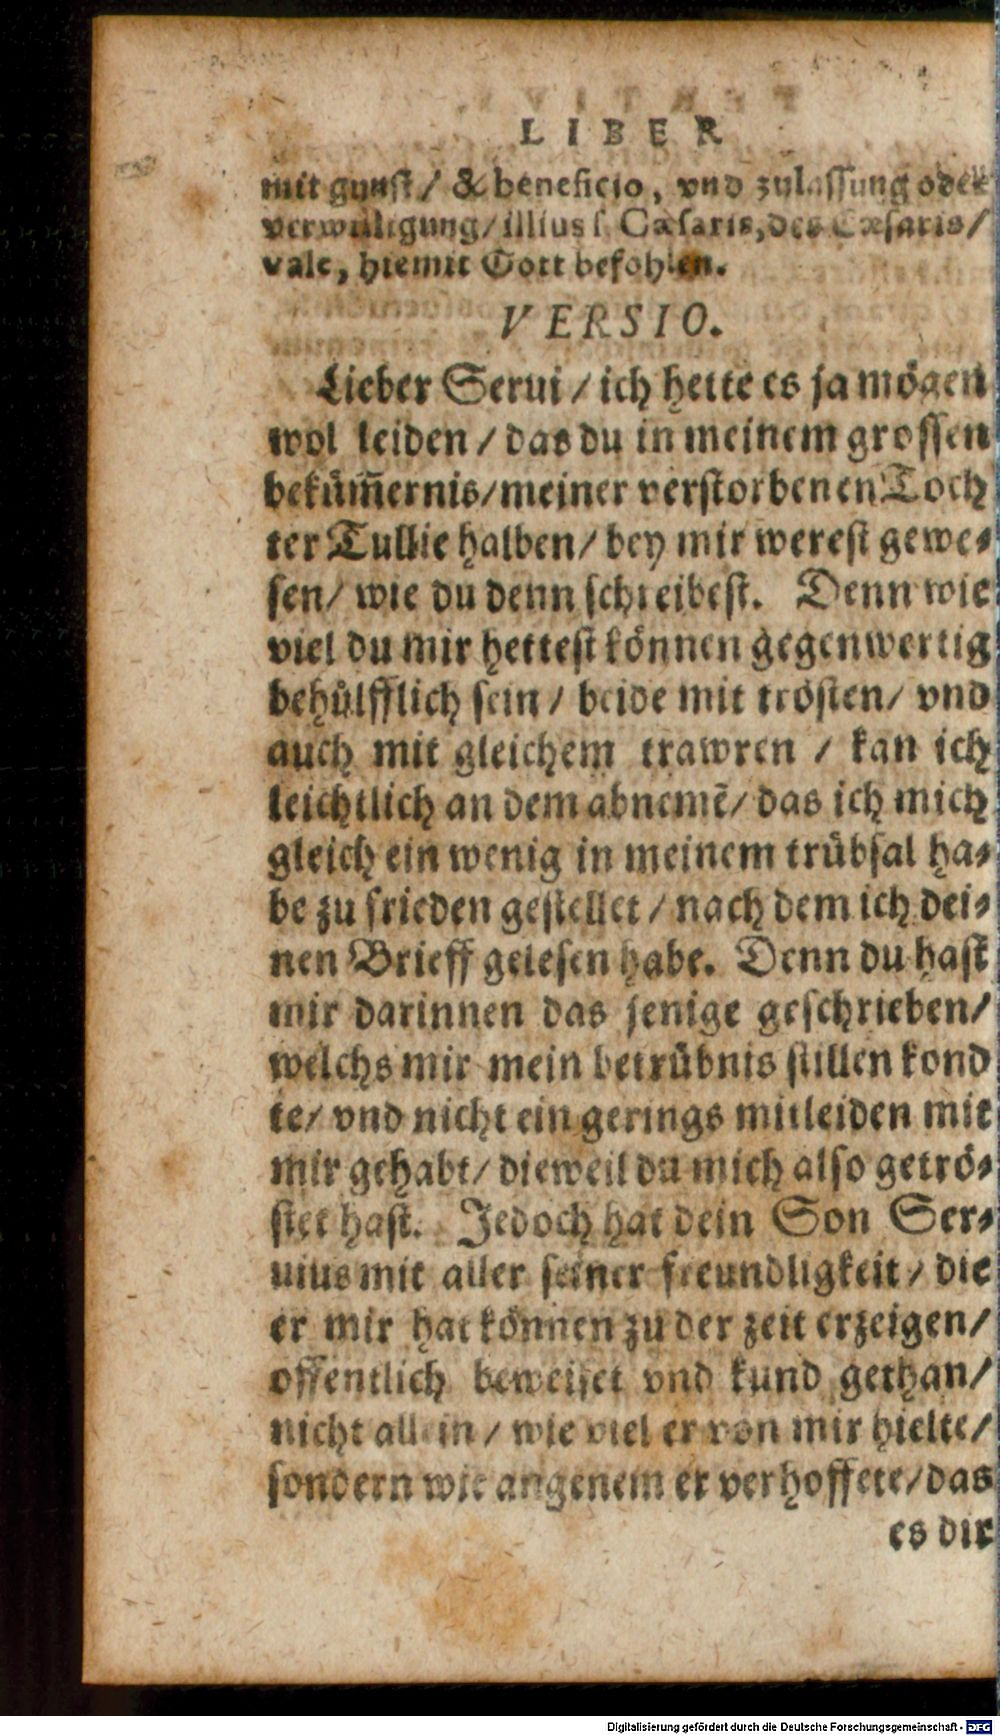 LIBER
mit gunst/ & beneficio, vnd zulassung oder
verwilligung/ illius s. Cæsaris, des Cæsaris/
vale, hiemit Gott befohlen.
VERSIO.
Lieber Serui / ich hette es ja mögen
wol leiden / das du in meinem grossen
bekümm̃ernis/ meiner verstorbenen Toch
ter Tullie halben/ bey mir werest gewe⸗
sen/ wie du denn schreibest. Denn wie
viel du mir hettest können gegenwertig
behülfflich sein / beide mit trösten/ vnd
auch mit gleichem trawren / kan ich
leichtlich an dem abnemẽ/ das ich mich
gleich ein wenig in meinem trübsal ha⸗
be zu frieden gestellet / nach dem ich dei⸗
nen Brieff gelesen habe. Denn du hast
mir darinnen das jenige geschrieben/
welchs mir mein betrübnis stillen kond
te/ vnd nicht ein gerings mitleiden mit
mir gehabt/ dieweil du mich also getrö⸗
stet hast. Jedoch hat dein Son Ser⸗
uius mit aller seiner freundligkeit / die
er mir hat können zu der zeit erzeigen/
offentlich beweiset vnd kund gethan/
nicht allein / wie viel er von mir hielte/
sondern wie angenem er verhoffete/ das
es dir
Digitalisierung gefördert durch die Deutsche Forschungsgemeinschaft - DFG